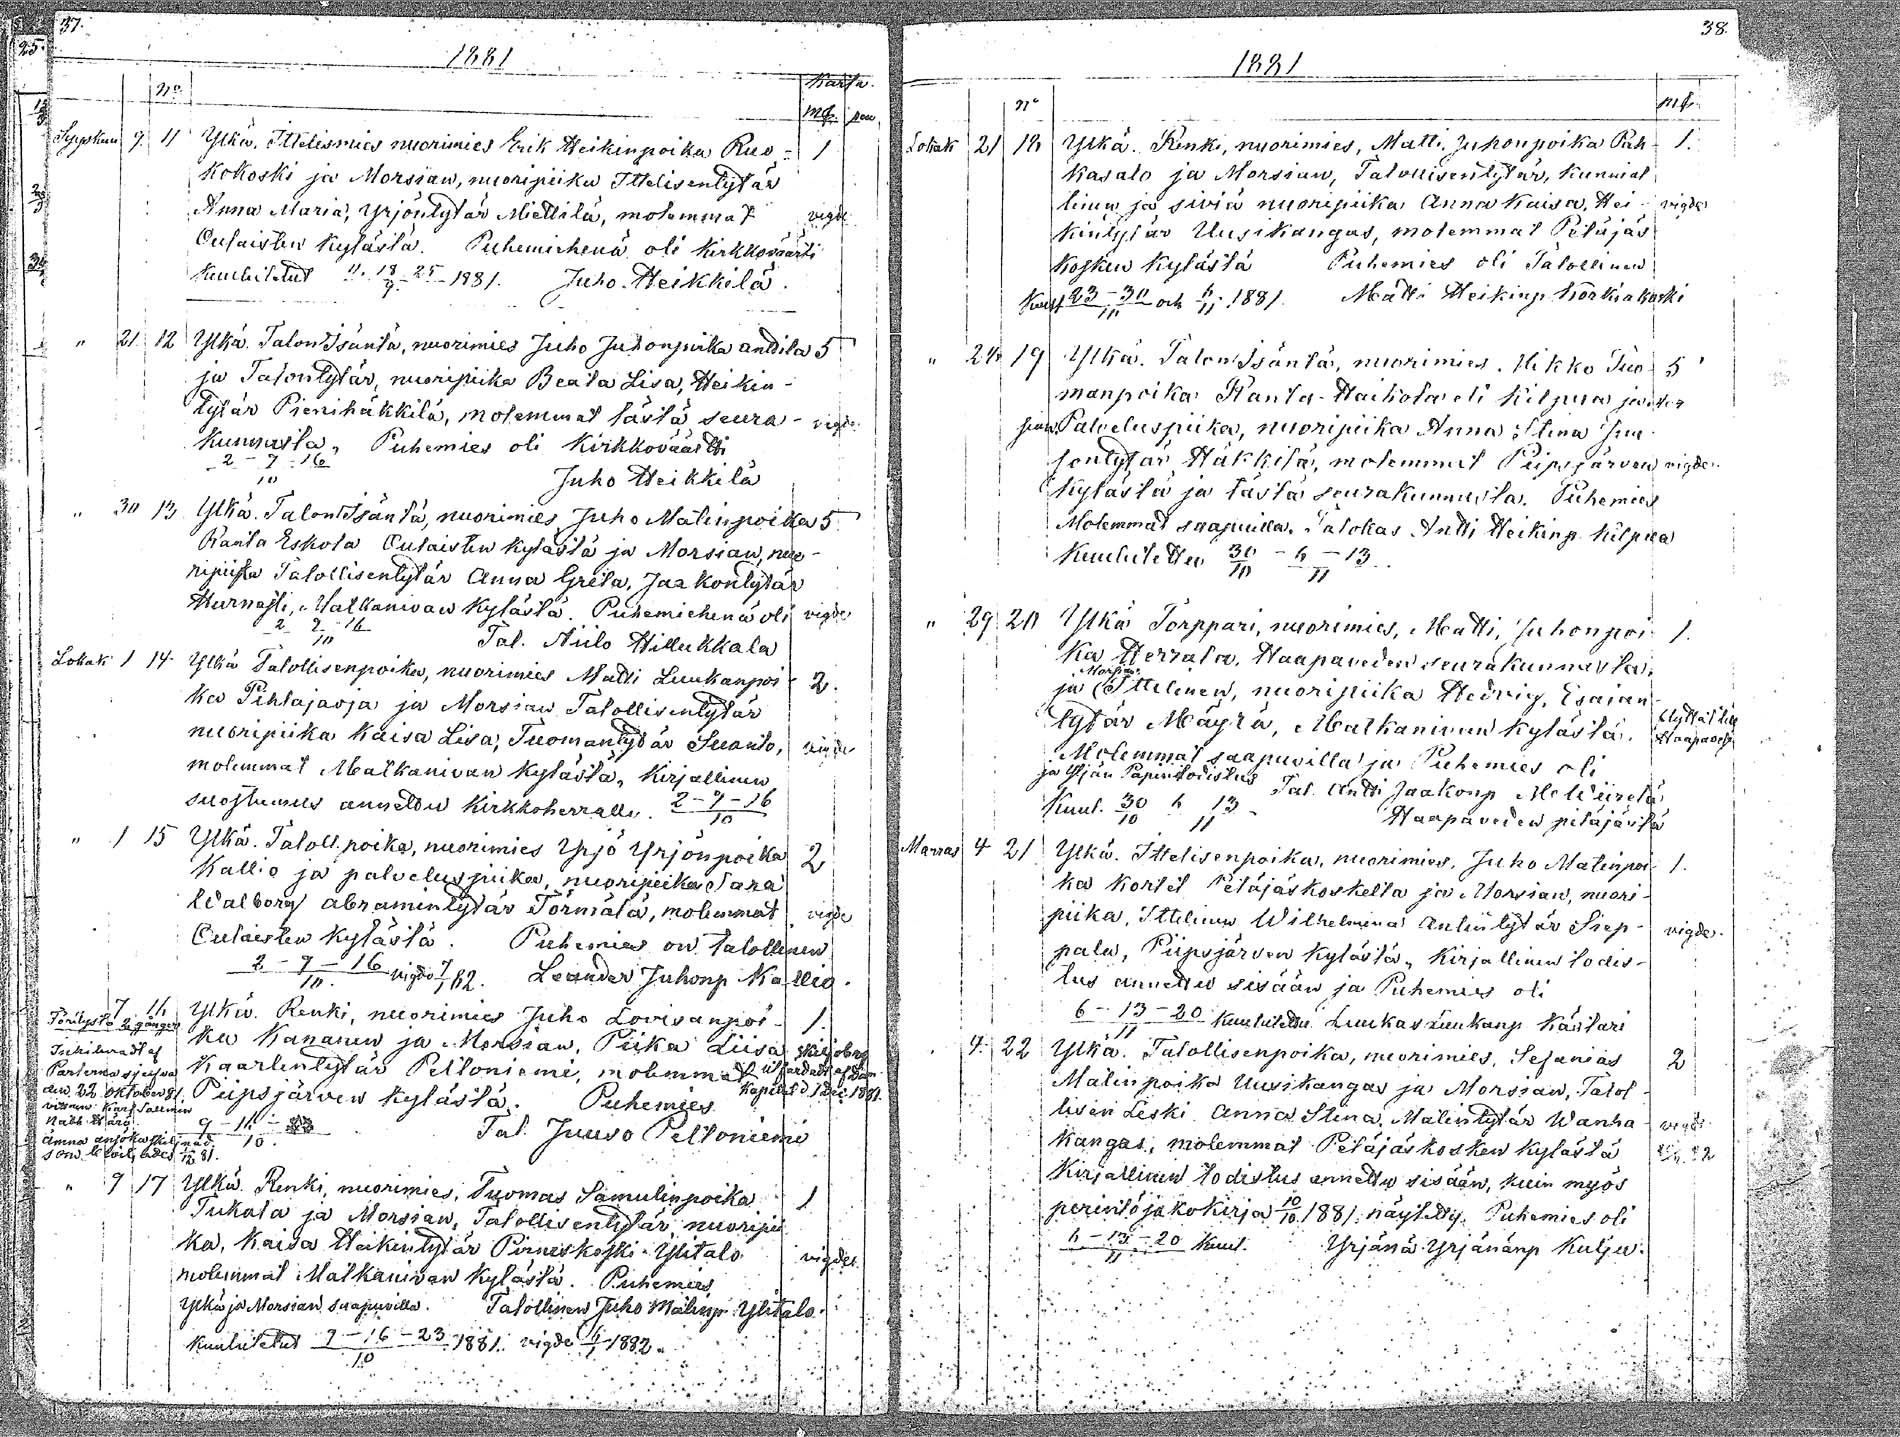 37.
25.
1881
No
Kassa.
mk. pen
Syyskuu 9 11 Ylkä. Ittelismies nuorimies Erik Heikinpoika Ruo- 1
kokoski ja Morsian, nuoripiika Ittelisentytär
Anna Maria, Yrjöntytär Miettilä, molemmat vigde
Oulaisten kylästä. Puhemiehenä oli kirkkoväärti
Kuulutetut 11. 18 - 25 - 1881. Juho Heikkilä.
9
" 21 12 Ylkä. Talon Isäntä, nuorimies Juho Juhonpoika Anttila 5
ja Talontytär, nuoripiika Beata Lisa, Heikin-
tytär Pienihäkkilä, molemmat tästä seura- vigde
kunnasta, Puhemies oli Kirkkoväärtti
2 - 9 - 16
10
Juho Heikkilä
" 30 13 Ylkä. Talon Isäntä, nuorimies Juho Matinpoika 5
Ranta Eskola Oulaisten kylästä ja Morsian, nuo-
ripiika Talollisentytär Anna Greta, Jaakontytär
Hurnasti, Matkanivan kylästä. Puhemiehenä oli vigde
2 9 16
10
Tal. Niilo Hillukkala
Lokak 1 14 Ylkä Talollisenpoika, nuorimies Matti Luukanpoi- 2.
ka Pihlajaoja ja Morsian Talollisentytär
nuoripiika Kaisa Lisa, Tuomantytär Suanto, vigde
molemmat Matkanivan kylästä, Kirjallinen
suostumus annettu Kirkkoherralle. 2 - 9 - 16
10
" 1 15 Ylkä. Taloll.poika, nuorimies Yrjö Yrjönpoika 2
Kallio ja palveluspiika, nuoripiika Sara
Walborg Abramintytär Törmälä, molemmat vigde
Oulaisten kylästä. Puhemies on talollinen
2 - 9 - 16
10.
vigde 7/1 82. Leander Juhonp Kallio.
7 16 Ylkä. Renki, nuorimies Juho Lovisanpoi- 1.
ka Kananen ja Morsian, Piika Liisa
Kaarlentytär Peltoniemi, molemmat
Piipsjärven kylästä. Puhemies
Tal. Juuso Peltoniemi
den 22 oktober 81.
" 9 17 Ylkä. Renki, nuorimies, Tuomas Samulinpoika 1
Tukala ja Morsian, Talollisentytär nuoripii
ka, Kaisa Heikintytär Pirneskoski Ylitalo vigde
molemmat Matkanivan kylästä. Puhemies
Ylkä ja Morsian saapuvilla. Talollinen Juho Matinp. Ylitalo.
Kuulutetut 9 - 16 - 23 1881. vigde 1882.
10
38
1881
No
mk.
Lokak 21 18 Ylkä. Renki, nuorimies, Matti Juhonpoika Pah- 1.
kasalo ja Morsian, Talollisentytär, kunnial
linen ja siviä nuoripiika Anna Kaisa, Hei- vigde
kintytär Uusikangas, molemmat Petäjäs
kosken kylästä Puhemies oli Talollinen
23 - 30 och 6 1881. Matti Heikinp
10 11
" 24 19 Ylkä. Talon Isäntä, nuorimies. Mikko Tuo- 5
manpoika Ranta-Haikola eli Kilpua ja
Palveluspiika, nuoripiika Anna Stina Juu-
sontytär Häkkilä, molemmat Piipsjärven vigde.
kylästä ja tästä seurakunnasta. Puhemies
Molemmat saapuvilla. Talokas Antti Heikinp Kilpua
Kuulutettu 30 - 6 - 13
10 11
" 29 20 Ylkä Torppari, nuorimies, Matti, Juhonpoi- 1.
ka Herrala, Haapaveden seurakunnasta,
Morsian
ja Ittelinen, nuoripiika Hedvig, Esaian
tytär Mäyrä, Matkanivan kylästä.
Molemmat saapuvilla ja Puhemies oli
ja Yljän Papintodistus
Tal. Antti Jaakonp
Kuul. 30 6 13
10 11
Haapaveden pitäjästä
Marras 4 21 Ylkä. Ittelisenpoika, nuorimies, Juho Matinpoi- 1.
ka Kortet Petäjäskoskelta ja Morsian, nuori-
piika, Ittelinen Wilhelmina Antintytär Siep-
pala, Piipsjärven kylästä, Kirjallinen todis- vigde.
tus annettu sisään ja Puhemies oli
6 - 13 - 20 kuulutettu. Luukas Luukanp Kastari
11
4 22 Ylkä. Talollisenpoika, nuorimies, Sefanias 2
Matinpoika Uusikangas ja Morsian, Talol-
lisen Leski Anna Stina, Matintytär Wanha- vigde
kangas, molemmat Petäjäskosken kylästä
Kirjallinen todistus annettu sisään, kuin myös
perintöjakokirja 10/10 1881. näytetty. Puhemies oli
6 - 13 - 20 kuul. Yrjänä Yrjänänp Kulju.
11